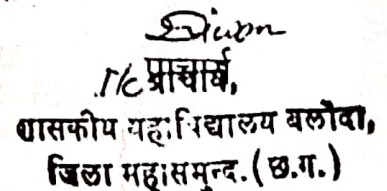 I/C प्राचार्य,
शासकीय महाविद्यालय बलौदा,
जिला महासमुन्द. (छ.ग.)